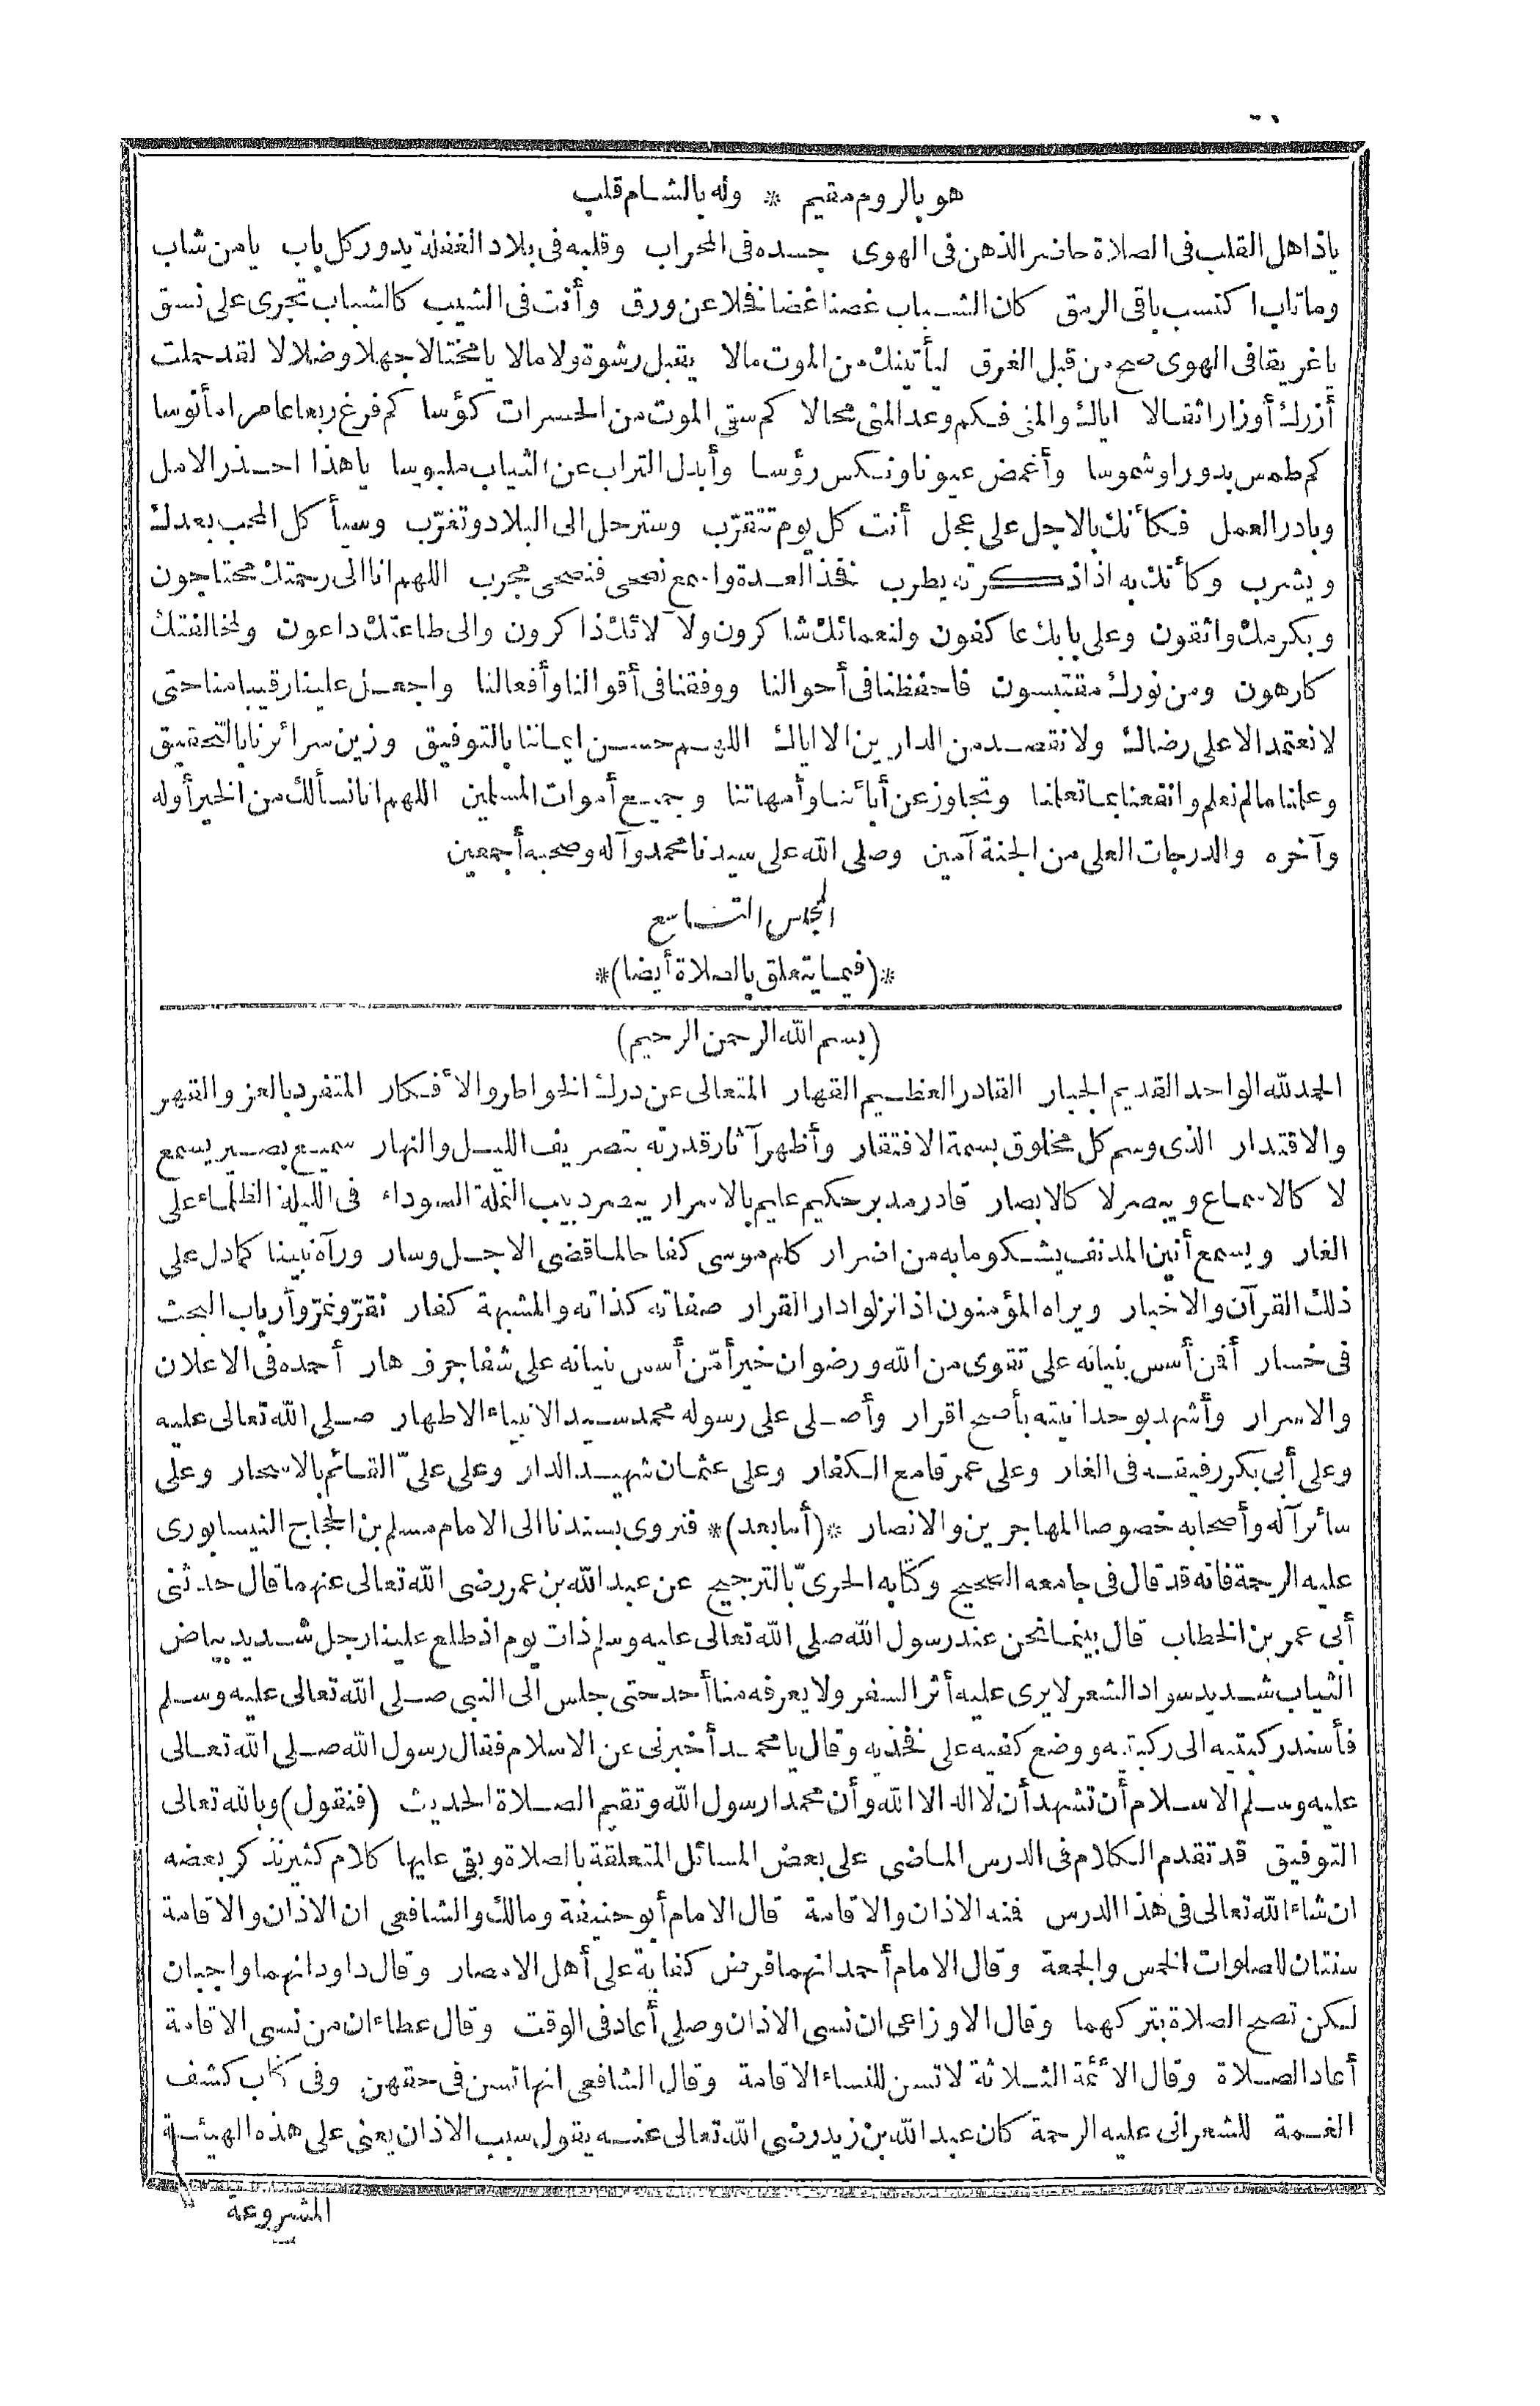 هو بالروم مقيم * وله بالشام قلب
ياذاهل القلب فى الصلاة حاضر الذهن فى الهوى جسده فى المحراب وقلبه فى بلاد الغفلة يدور كل باب يا من شاب
وما تاب اكتسب باقى الرمق كان الشباب غصنا غضا فخلا عن ورق وأنت فى الشيب كالشباب تجرى على نسق
ياغريقا فى الهوى صح من قبل الغرق ليأتينك من الموت مالا يقبل رشوة ولا مالا يا مختالا جهلا وضلالا لقد حملت
أزرك أوزارا ثقالا اياك والمنى فكم وعد المنى محالا كم سقى الموت من الحسرات كؤسا كم فرغ ربعا عامرا مأنوسا
كم طمس بدورا وشموسا وأغمض عيونا ونكس رؤسا وأبدل التراب عن الثياب ملبوسا ياهذا احذر الامل
وبادر العمل فكأنك بالاجل على عجل أنت كل يوم تتقرّب وسترحل الى البلاد وتغرّب وسيأكل المحب بعدك
ويشرب وكأنك به اذا ذكرته يطرب فخذ العدة واسمع نصحى فنصحى مجرب اللهم انا الى رحمتك محتاجون
وبكرمك واثقون وعلى بابك عاكفون ولنعمائك شاكرون ولآلائك ذاكرون والى طاعتك داعون ولمخالفتك
كارهون ومن نورك مقتبسون فاحفظنا فى أحوالنا ووفقنا فى أقوالنا وأفعالنا واجعل علينا رقيبا منا حتى
لانعتمد الا على رضاك ولا نقصد من الدارين الا اياك اللهم حسن ايماننا بالتوفيق وزين سرائرنا بالتحقيق
وعلمنا مالم نعلم وانفعنا بما تعلمنا وتجاوز عن أبائنا وأمهاتنا وجميع أموات المسلمين اللهم انا نسألك من الخير أوله
وآخره والدرجات العلى من الجنة آمين وصلى الله على سيدنا محمد وآله وصحبه أجمعين
المجلس التاسع
*(فيما يتعلق بالصلاة أيضا)*
(بسم الله الرحمن الرحيم)
الحمد لله الواحد القديم الجبار القادر العظيم القهار المتعالى عن درك الخواطر والأفكار المتفرد بالعز والقهر
والاقتدار الذى وسم كل مخلوق بسمة الافتقار وأظهر آثار قدرته بتصريف الليل والنهار سميع بصير يسمع
لا كالاسماع ويبصر لا كالابصار قادر مدبر حكيم عليم بالاسرار يبصر دبيب النملة السوداء فى الليلة الظلماء على
الغار ويسمع أنين المدنف يشكو مابه من اضرار كلم موسى كفاحا لما قضى الاجل وسار ورآه نبينا كما دل على
ذلك القرآن والاخبار ويراه المؤمنون اذا نزلوا دار القرار صفاته كذاته والمشبهة كفار نقرّ ونمرّ وأرباب البحث
فى خسار أفمن أسس بنيانه على تقوى من الله ورضوان خير أمّن أسس بنيانه على شفا جرف هار أحمده فى الاعلان
والاسرار وأشهد بوحدانيته بأصح اقرار وأصلى على رسوله محمد سيد الانبياء الاطهار صلى الله تعالى عليه
وعلى أبى بكر رفيقه فى الغار وعلى عمر قامع الكفار وعلى عثمان شهيد الدار وعلى علىّ القائم بالاسحار وعلى
سائر آله وأصحابه خصوصا المهاجرين والانصار *(أما بعد)* فنروى بسندنا الى الامام مسلم بن الحجاج النيسابورى
عليه الرحمة فانه قد قال فى جامعه الصحيح وكتابه الحرىّ بالترجيح عن عبد الله بن عمر رضى الله تعالى عنهما قال حدثنى
أبى عمر بن الخطاب قال بينما نحن عند رسول الله صلى الله تعالى عليه وسلم ذات يوم اذ طلع علينا رجل شديد بياض
الثياب شديد سواد الشعر لايرى عليه أثر السفر ولا يعرفه منا أحد حتى جلس الى النبى صلى الله تعالى عليه وسلم
فأسند ركبتيه الى ركبتيه ووضع كفيه على فخذيه وقال يا محمد أخبرنى عن الاسلام فقال رسول الله صلى الله تعالى
عليه وسلم الاسلام أن تشهد أن لا اله الا الله وأن محمدا رسول الله وتقيم الصلاة الحديث (فنقول) وبالله تعالى
التوفيق قد تقدم الكلام فى الدرس الماضى على بعض المسائل المتعلقة بالصلاة وبقى عليها كلام كثير نذكر بعضه
ان شاء الله تعالى فى هذا الدرس فمنه الاذان والاقامة قال الامام أبو حنيفة ومالك والشافعى ان الاذان والاقامة
سنتان للصلوات الخمس والجمعة وقال الامام أحمد انهما فرض كفاية على أهل الامصار وقال داود انهما واجبان
لكن تصح الصلاة بتركهما وقال الاوزاعى ان نسى الاذان وصلى أعاد فى الوقت وقال عطاء ان من نسى الاقامة
أعاد الصلاة وقال الأئمة الثلاثة لاتسن للنساء الاقامة وقال الشافعى انها تسن فى حقهن وفى كتاب كشف
الغمة للشعرانى عليه الرحمة كان عبد الله بن زيد رضى الله تعالى عنه يقول سبب الاذان يعنى على هذه الهيئة
المشروعة